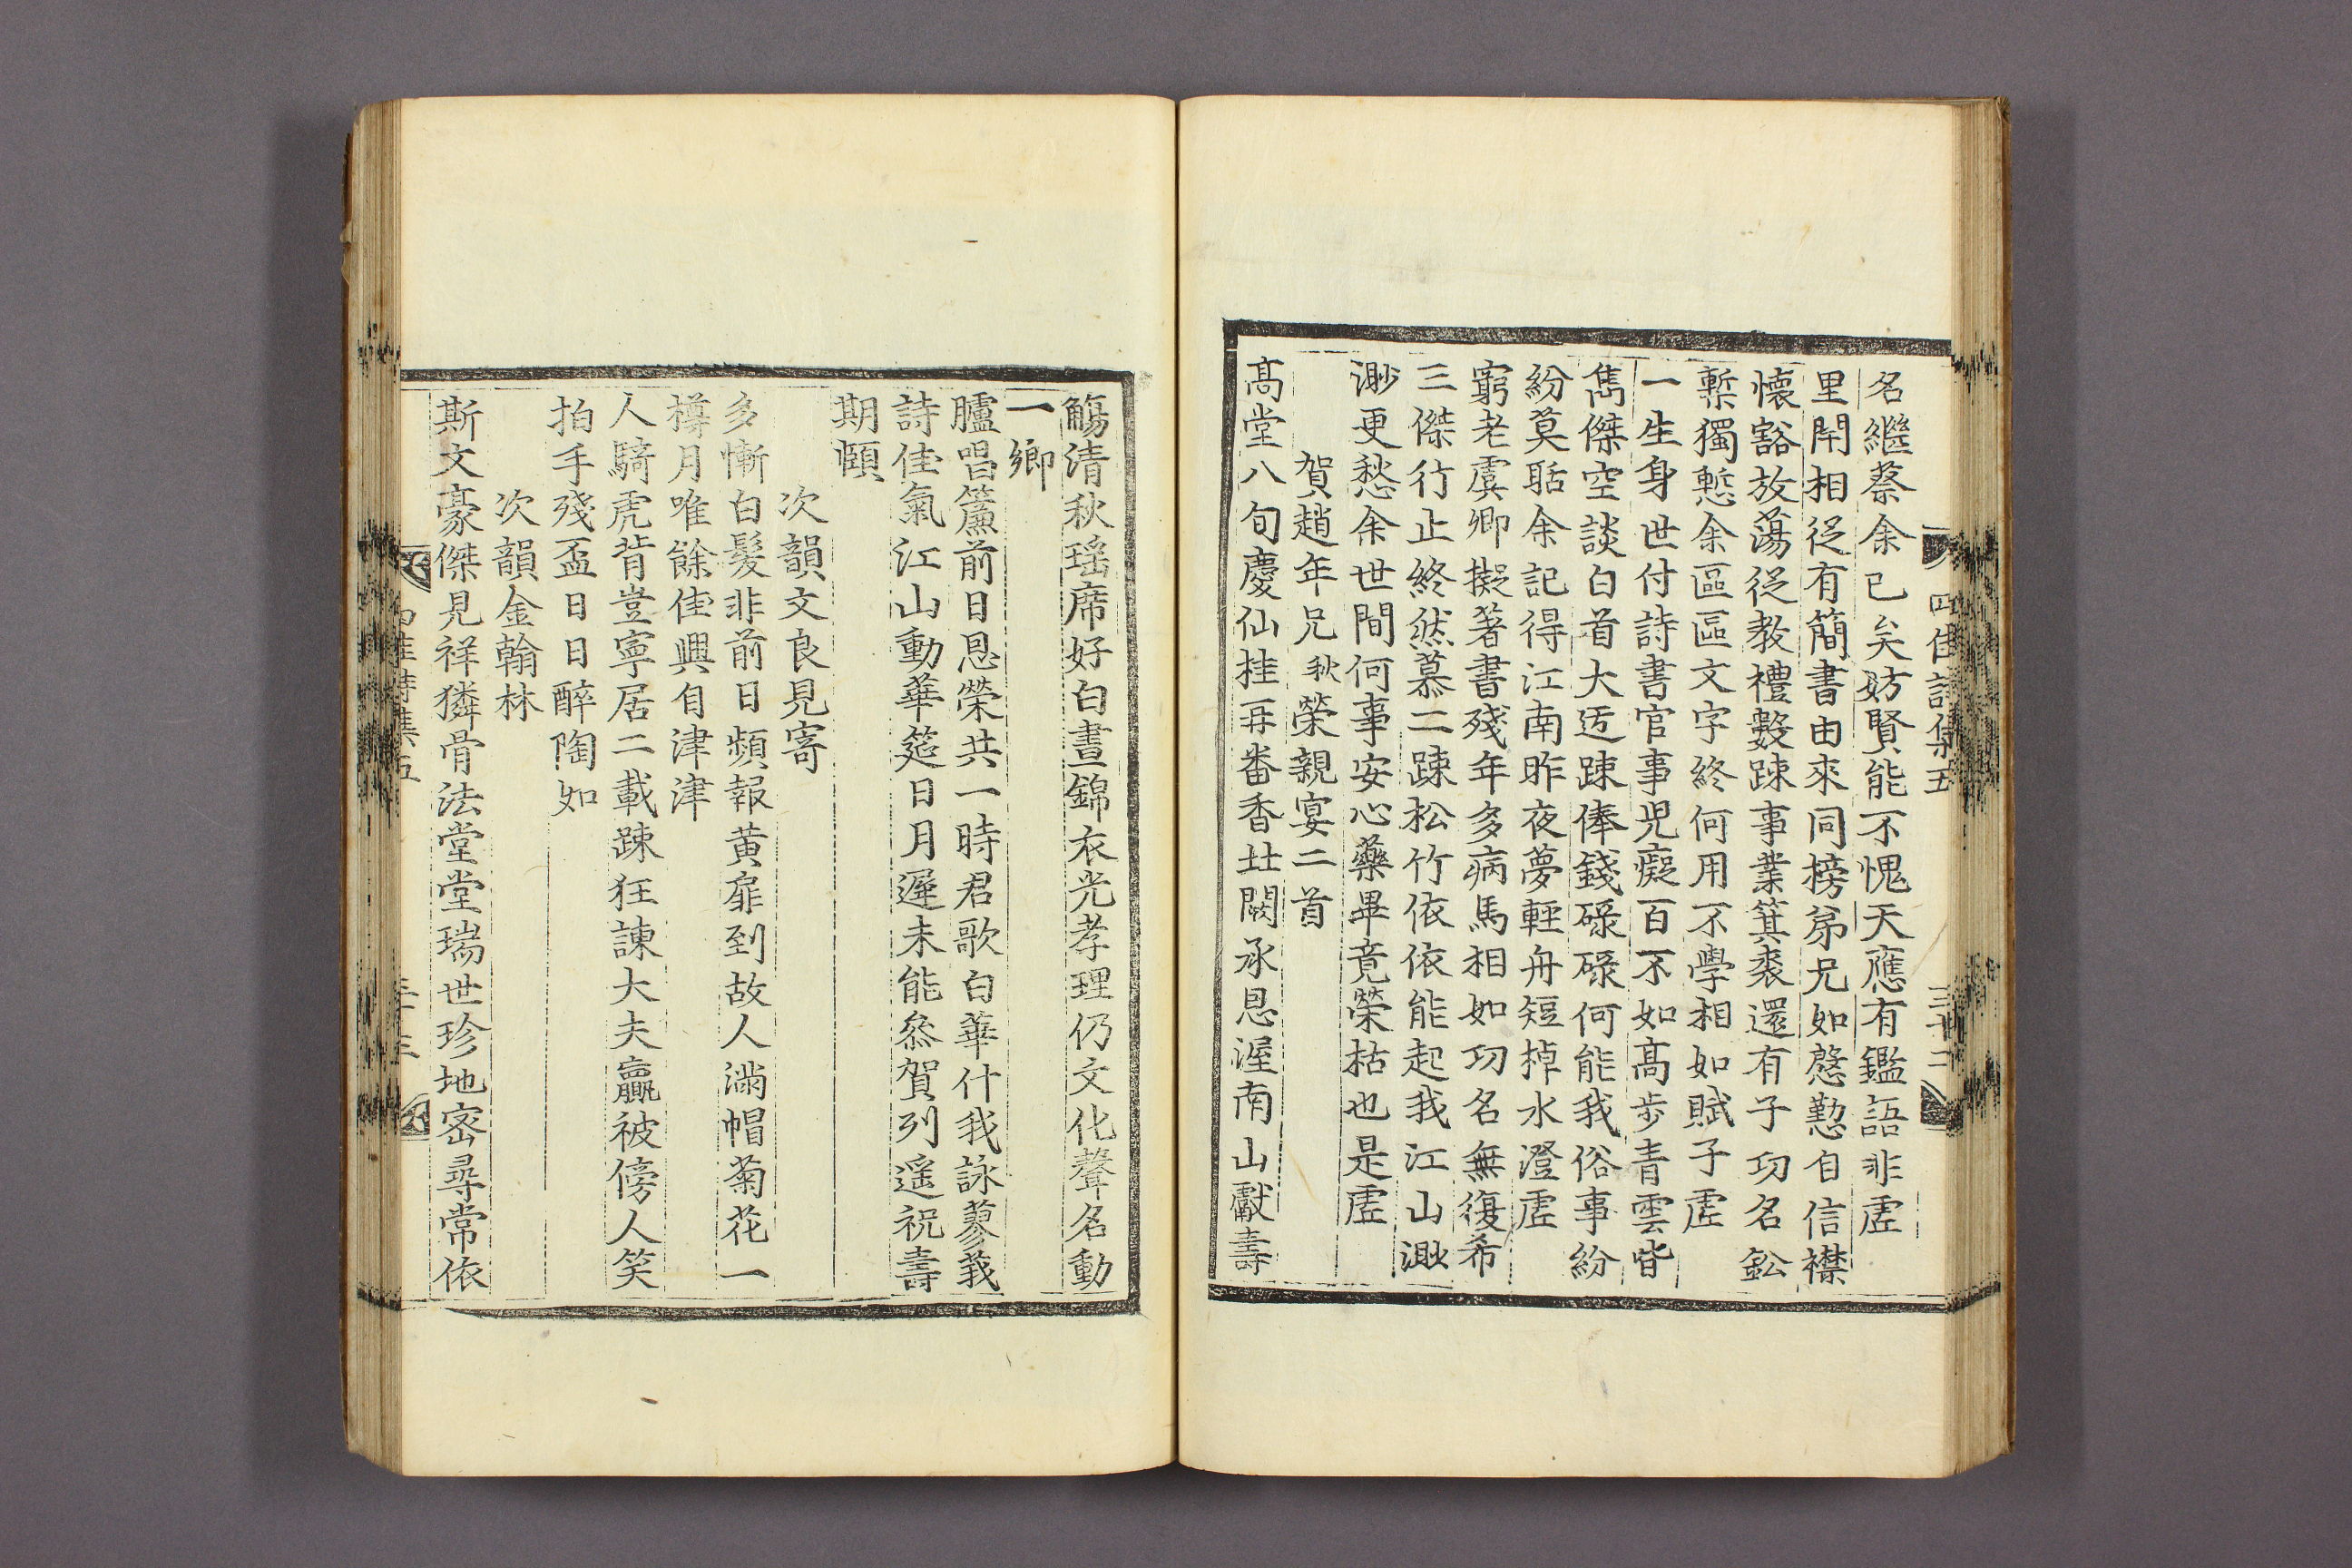 四佳詩集五
三十二
名繼蔡余已矣妨賢能不愧天應有鑑語非虛
里閈相從有簡書由來同榜弟兄如慇懃自信襟
懷豁放蕩從教禮數踈事業箕裘還有子功名鈆
槧獨慙余區區文字終何用不學相如賦子虛
一生身世付詩書官事兒癡百不如高步青雲皆
雋傑空談白首大迃踈俸錢碌碌何能我俗事紛
紛莫聒余記得江南昨夜夢輕舟短棹水澄虛
窮老虞卿擬著書殘年多病馬相如功名無復希
三傑行止終然慕二踈松竹依依能起我江山渺
渺更愁余世間何事安心藥畢竟榮枯也是虛
賀趙年兄秋榮親宴二首
高堂八旬慶仙桂再番香北闕承恩渥南山獻壽
觴清秋瑤席好白晝錦衣光孝理仍文化聲名動
一鄉
臚唱簾前日恩榮共一時君歌白華什我詠蓼莪
詩佳氣江山動華筵日月遲未能叅賀列遥祝壽
期頤
次韻文良見寄
多慚白髮非前日頻報黄扉到故人滿帽菊花一
樽月唯餘佳興自津津
人騎虎背豈寧居二載踈狂諫大夫贏被傍人笑
拍手殘盃日日醉陶如
次韻金翰林
斯文豪傑見祥獜骨法堂堂瑞世珍地密尋常依
四佳詩集五
三十三